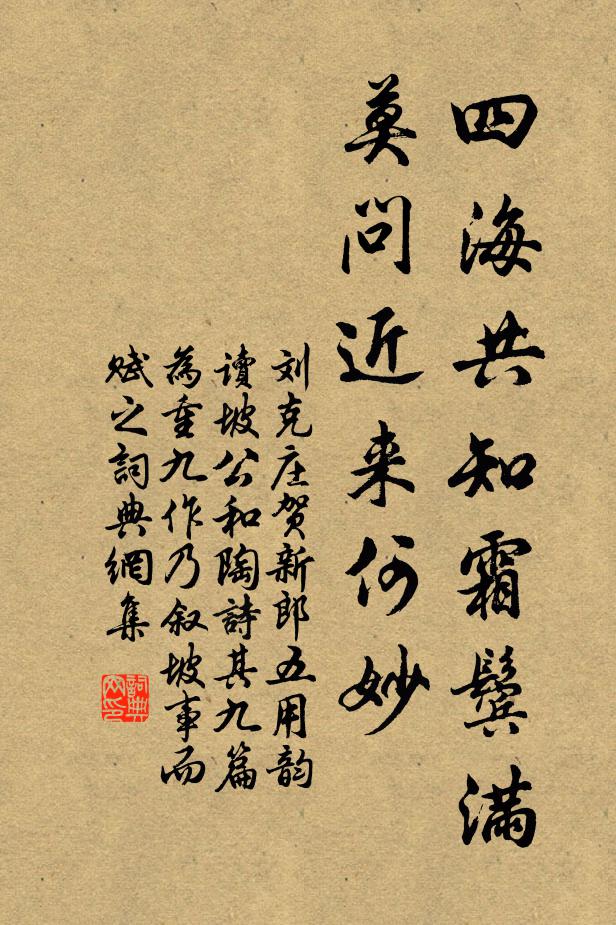 四海共知霜鬓满
莫问近来何妙
刘克庄贺新郎五用韵
读坡公和陶诗其九篇
為重九作乃叙坡事而
赋之词典網集
詞典